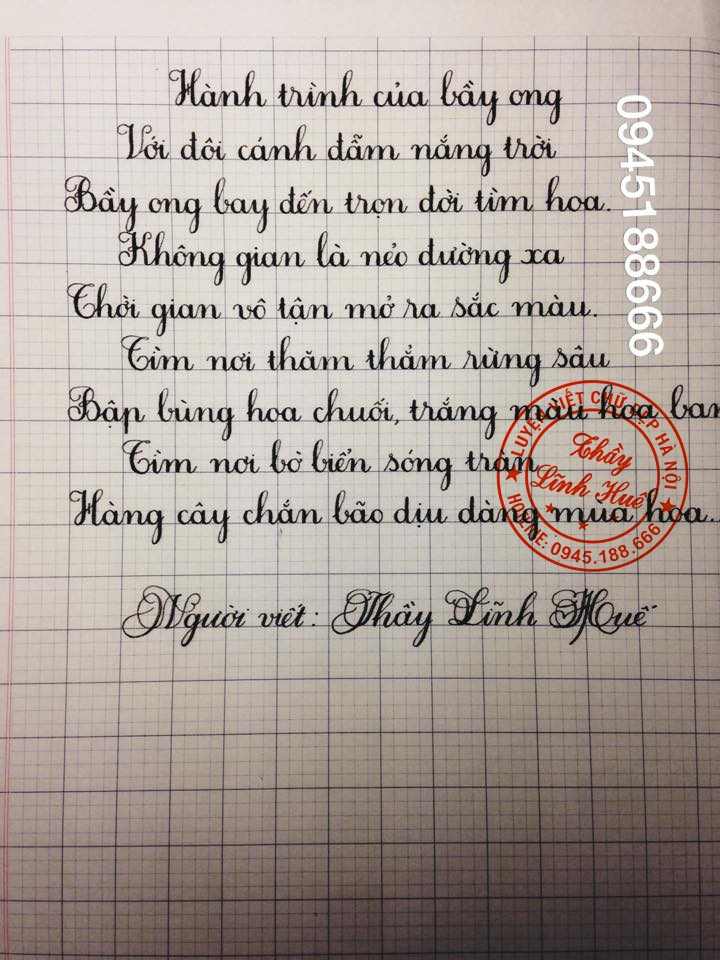 Hành trình của bầy ong
Với đôi cánh đẫm nắng trời
Bầy ong bay đến trọn đời tìm hoa.
Không gian là nẻo đường xa
Thời gian vô tận mở ra sắc màu.
Tìm nơi thăm thẳm rừng sâu
Bập bùng hoa chuối, trắng màu hoa ban
Tìm nơi bờ biển sóng tràn
Hàng cây chắn bão dịu dàng mùa hoa..
Người viết: Thầy Lĩnh Huế
0945188666
LUYỆN VIẾT CHỮ ĐẸP HÀ NỘI
Thầy
Lĩnh Huế
HOTLINE: 0945.188.666